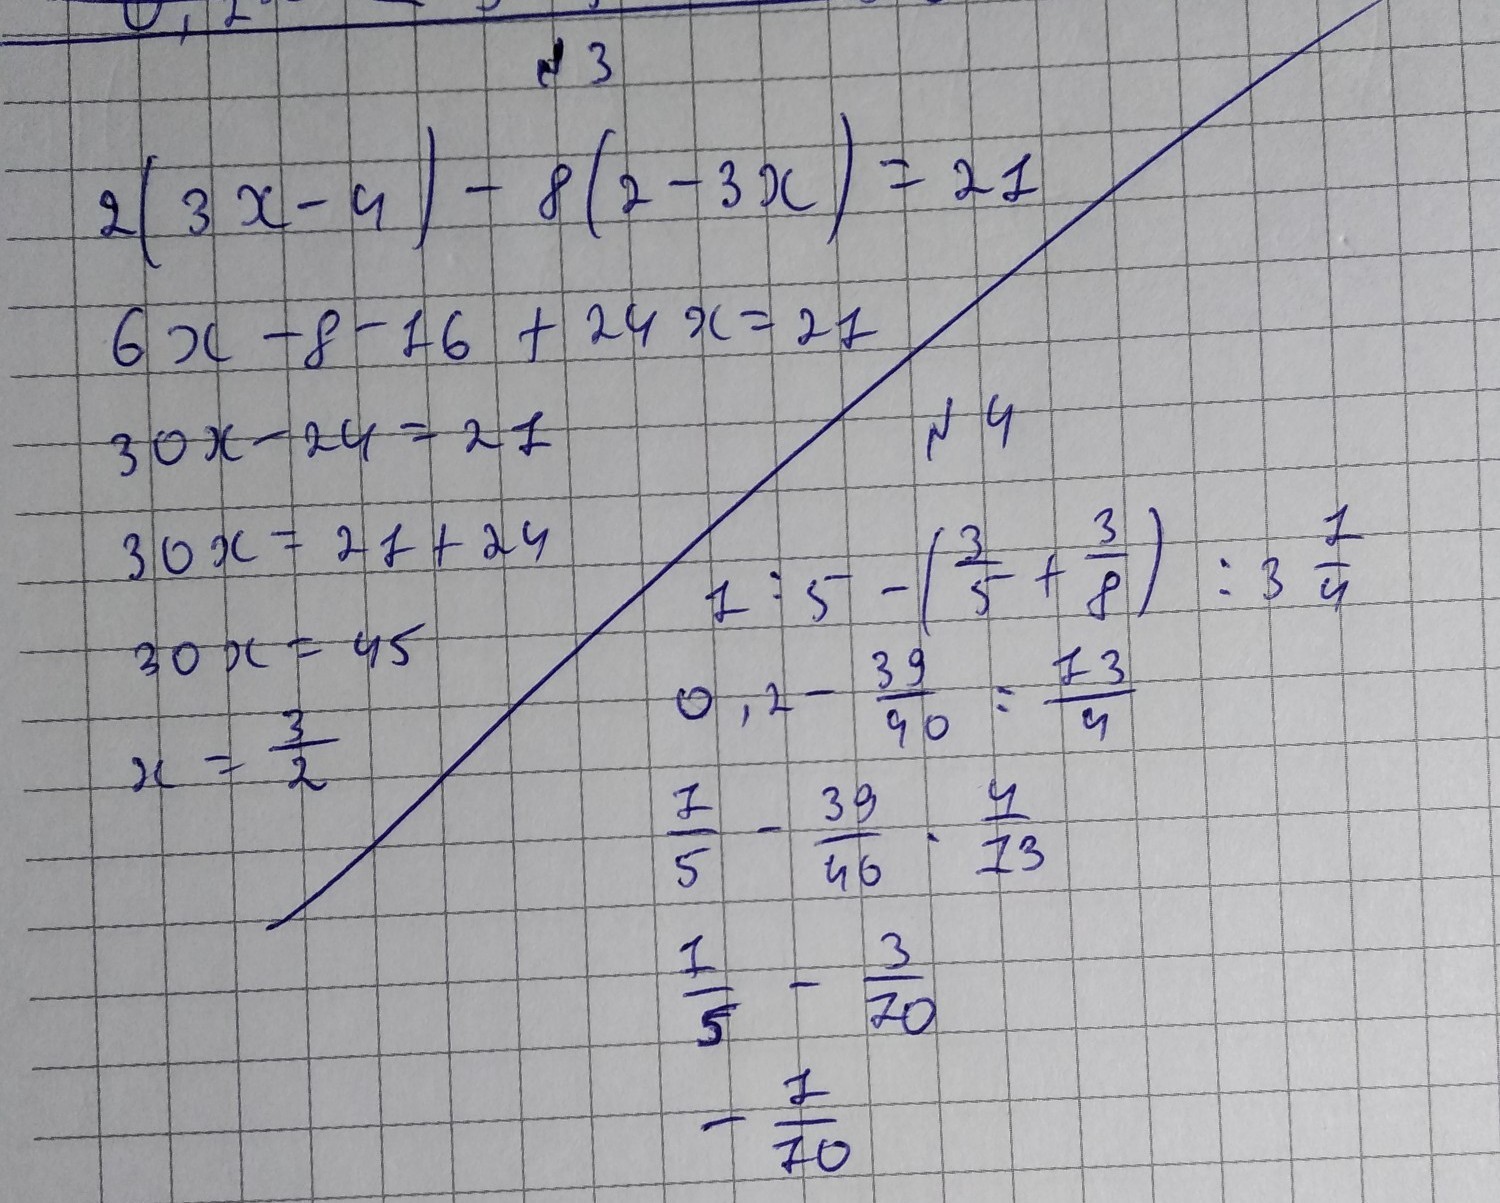 № 3
2(3x-4) - 8(2-3x) = 21
6x -8-16 + 24x = 21
30x-24 = 21
30x = 21+24
30x = 45
x = 3/2
№ 4
1:5 - (3/5 + 3/8) : 3 1/4
0,2 - 39/40 : 13/4
1/5 - 39/40 · 4/13
1/5 - 3/10
- 1/10